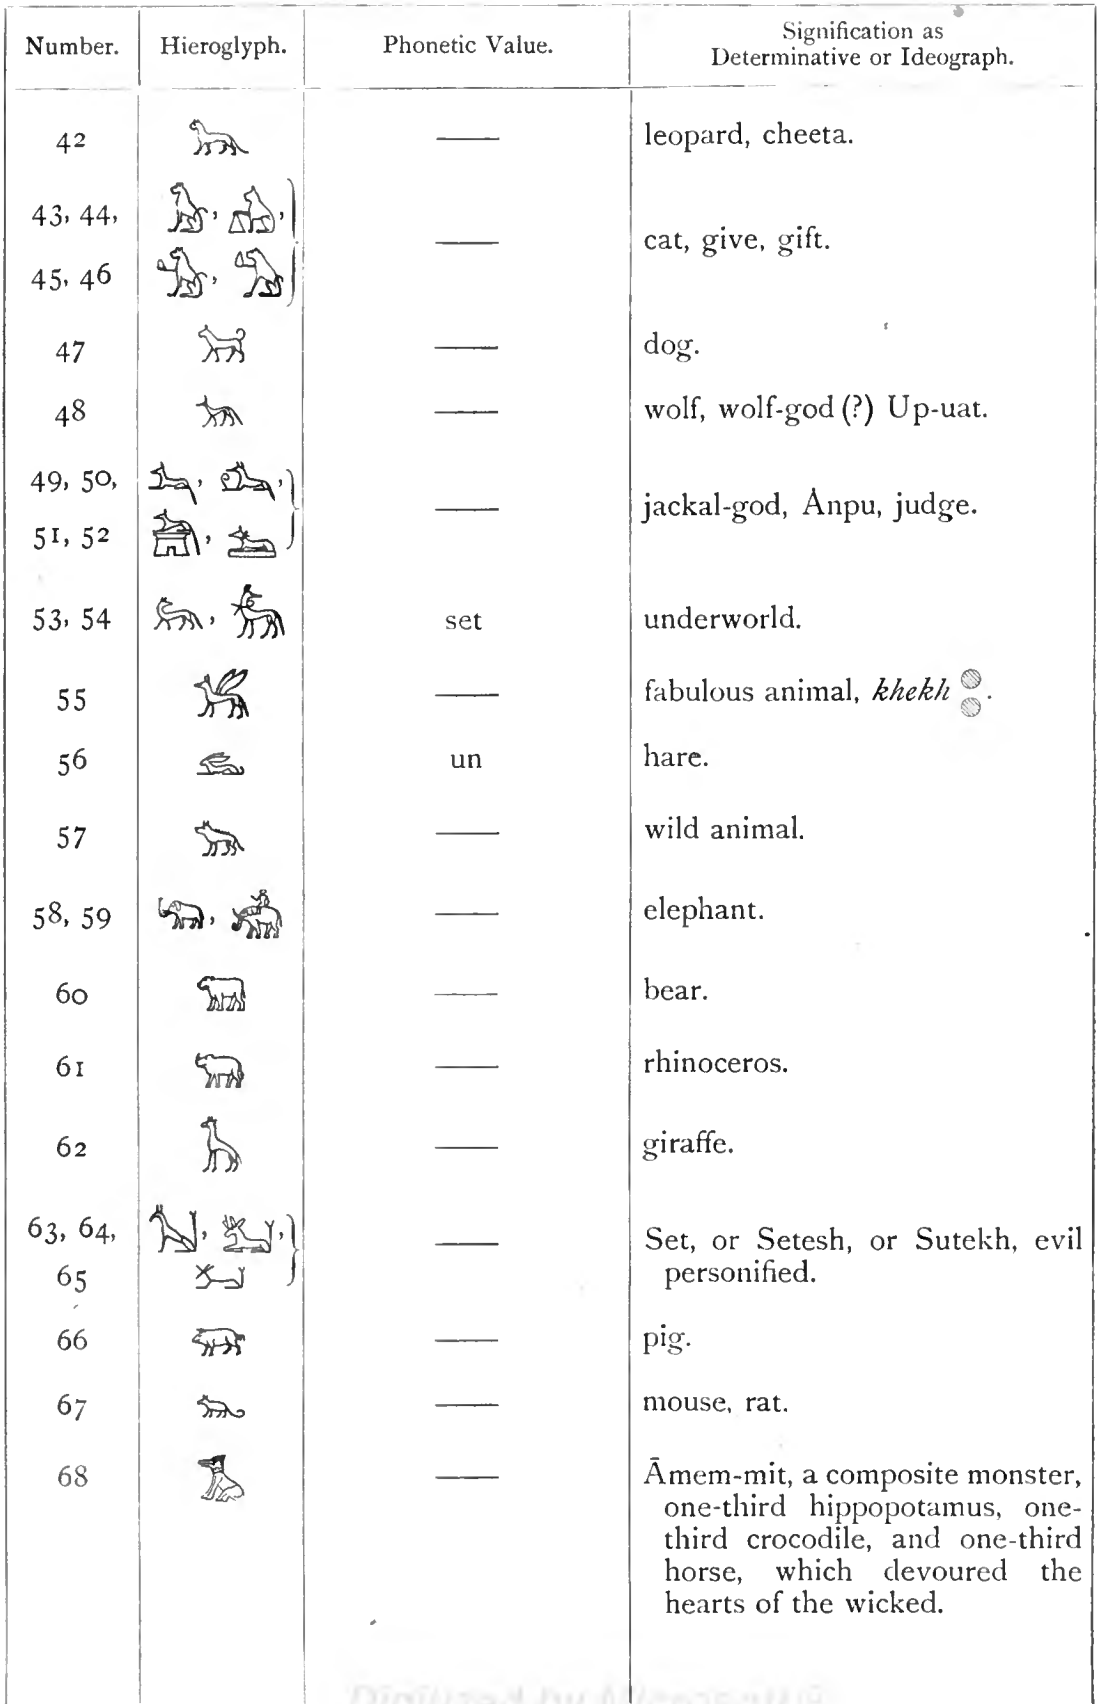 Number. Hieroglyph. Phonetic Value. Signification as
Determinative or Ideograph.
42 — leopard, cheeta.
43, 44,
45, 46 — cat, give, gift.
47 — dog.
48 — wolf, wolf-god (?) Up-uat.
49, 50,
51, 52 — jackal-god, Ȧnpu, judge.
53, 54 set underworld.
55 — fabulous animal, khekh.
56 un hare.
57 — wild animal.
58, 59 — elephant.
60 — bear.
61 — rhinoceros.
62 — giraffe.
63, 64, — Set, or Setesh, or Sutekh, evil
65 personified.
66 — pig.
67 — mouse, rat.
68 — Āmem-mit, a composite monster,
one-third hippopotamus, one-
third crocodile, and one-third
horse, which devoured the
hearts of the wicked.